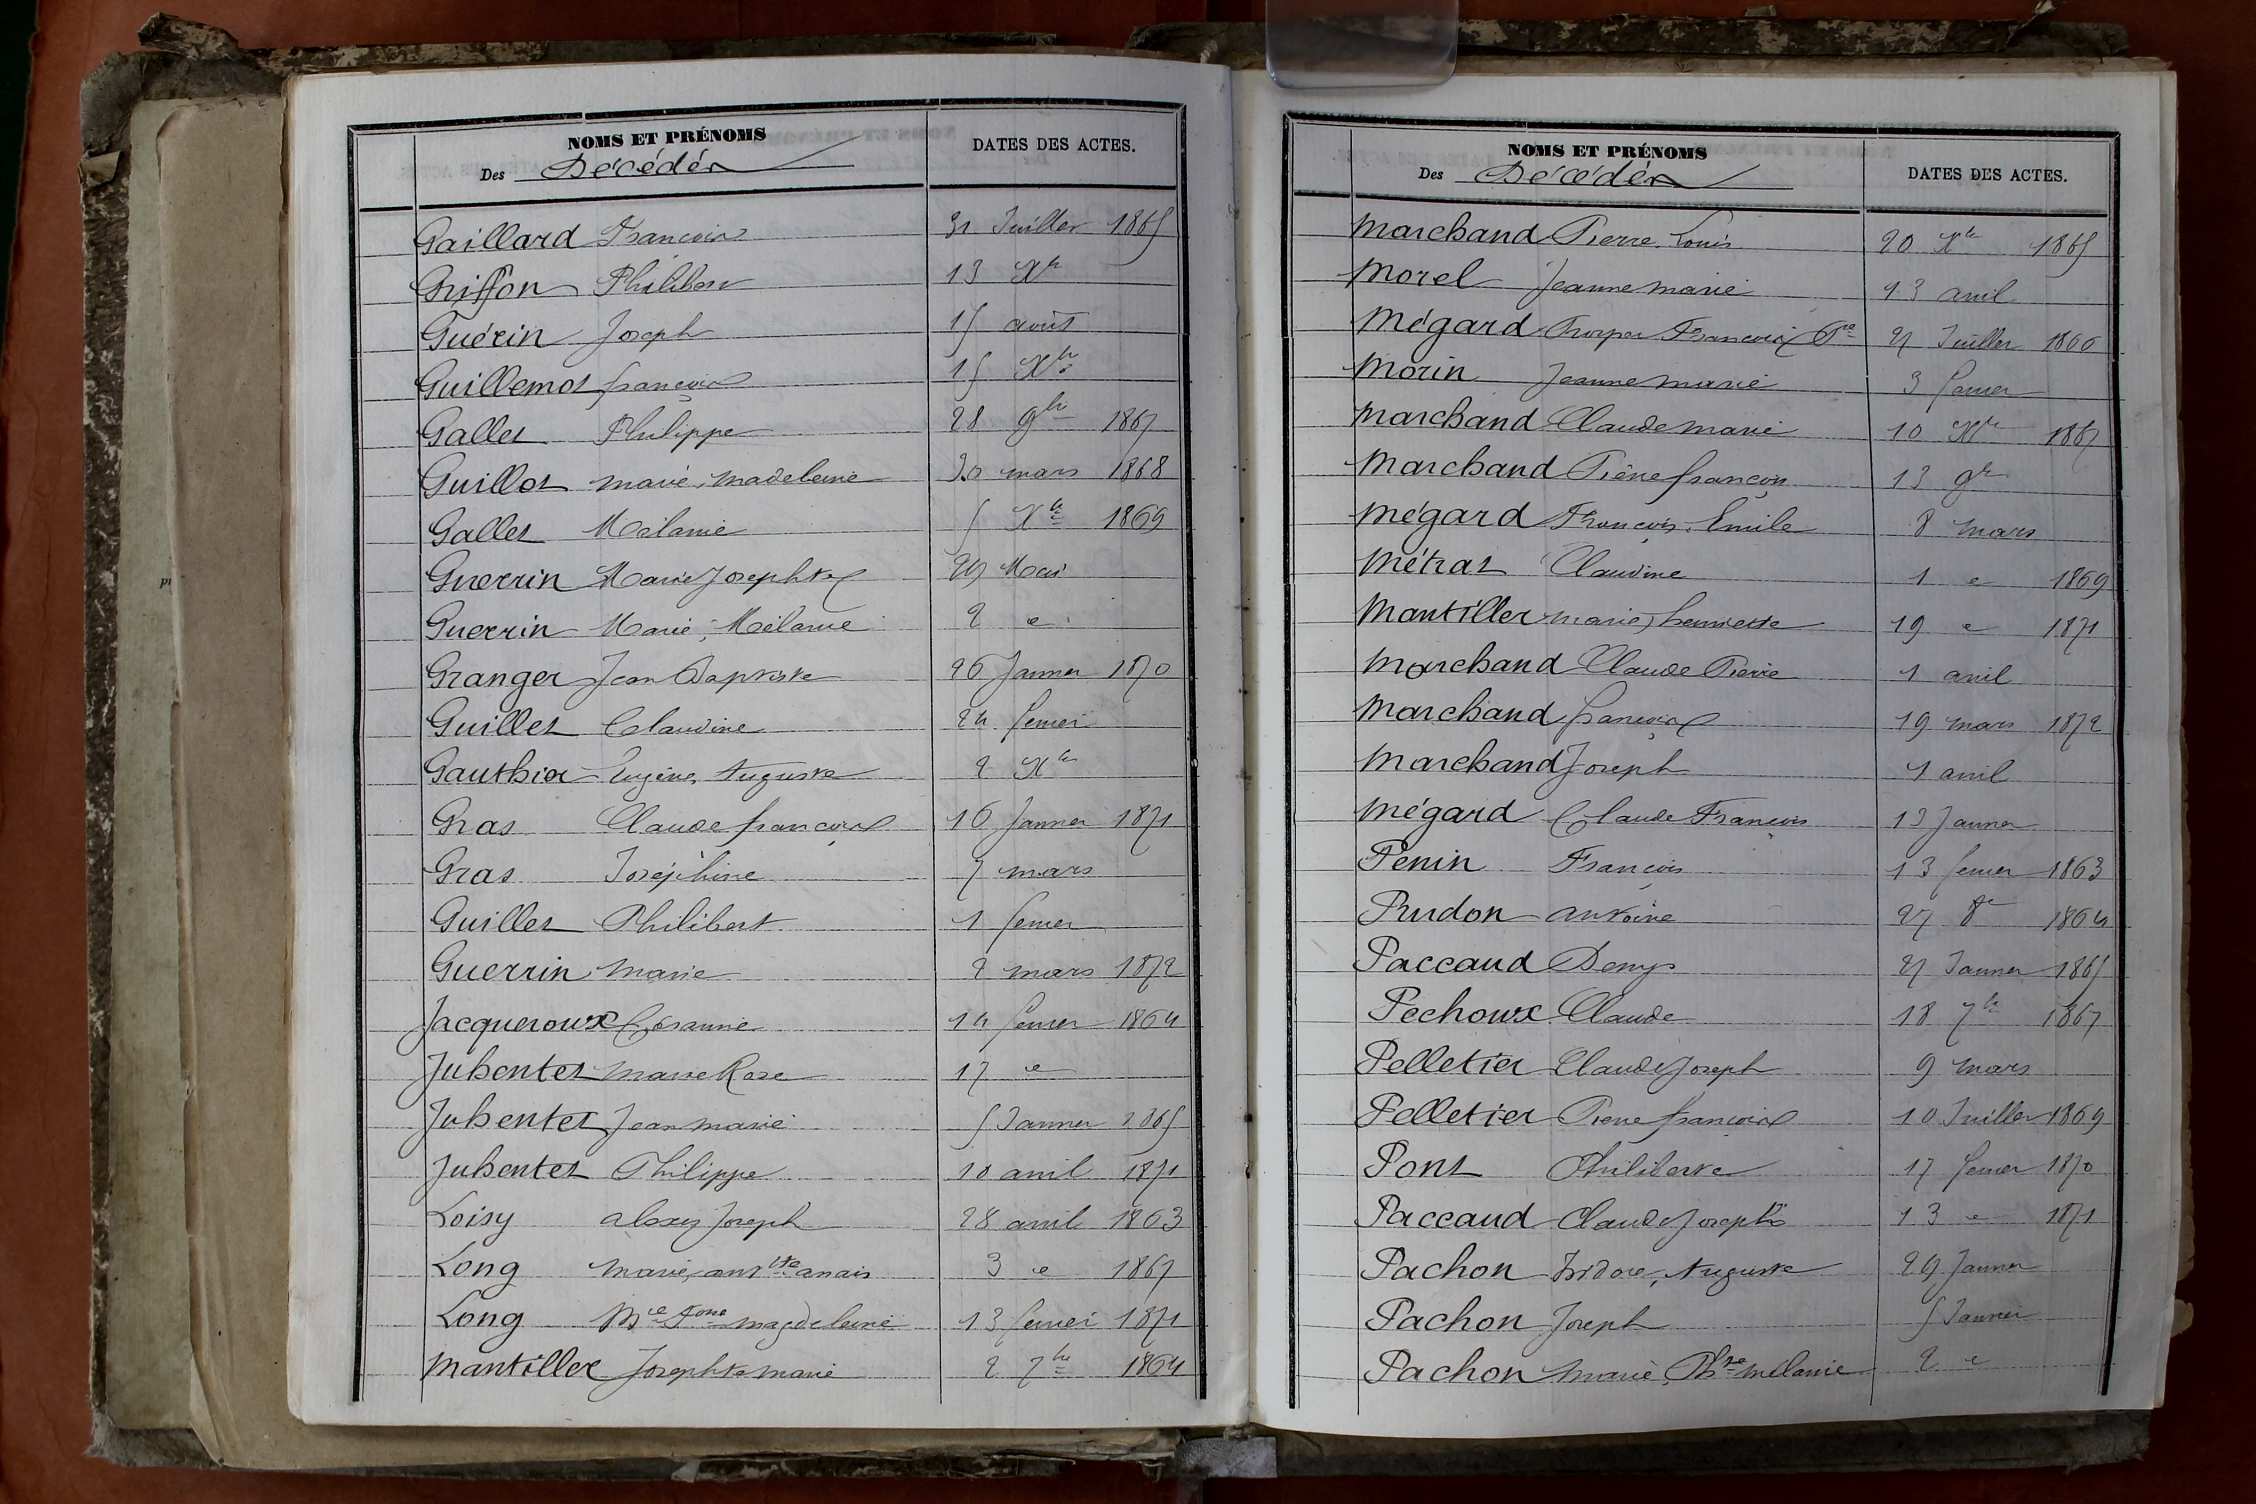 NOMS ET PRÉNOMS
Des Décédés
DATES DES ACTES.
Gaillard François 31 Juillet 1865
Griffon Philibert 13 Xbre
Guérin Joseph 15 août
Guillemot françois 15 Xbre
Gallet Philippe 28 9bre 1867
Guillot marie, madeleine 30 mars 1868
Gallet Mélanie 5 Xbre 1869
Guerrin Marie Josephte 29 Mai
Guerrin Marie, Mélanie 2 e
Granger Jean Baptiste 26 Janvier 1870
Guillet Claudine 24 fevrier
Gauthier Eugène, Auguste 2 Xbre
Gras Claude françois 16 Janvier 1871
Gras Joséphine 7 mars
Guillet Philibert 1 fevrier
Guerrin marie 2 mars 1872
Jacqueroux Césarine 14 fevrier 1864
Jubentet marie Rose 17 e
Jubentet Jean marie 5 Janvier 1865
Jubentet Philippe 10 avril 1871
Loisy alexis Joseph 28 avril 1863
Long marie, anttte anais 3 e 1867
Long Mie Fone magdeleine 13 fevrier 1871
Mantillet Josephte marie 2 7bre 1864
NOMS ET PRÉNOMS
Des Décédés
DATES DES ACTES.
Marchand Pierre Louis 20 Xbre 1865
Morel Jeanne marie 23 avril
Mégard Prosper François 21 Juillet 1866
Morin Jeanne marie 3 fevrier
Marchand Claude marie 10 Xbre 1867
Marchand Pierre françois 13 9bre
Mégard François, Emile 8 mars
Métrat Claudine 1 e 1869
Mantillet marie, henriette 19 e 1871
Marchand Claude Pierre 1 avril
Marchand françois 19 mars 1872
Marchand Joseph 1 avril
Mégard Claude François 13 Janvier
Penin François 13 fevrier 1863
Prudon antoine 27 8bre 1864
Paccaud Denys 21 Janvier 1865
Pechoux Claude 18 7bre 1867
Pelletier Claude Joseph 9 mars
Pelletier Pierre françois 10 Juillet 1869
Pont Philiberte 17 fevrier 1870
Paccaud Claude Joseph 13 e 1871
Pachon Isidore, Auguste 29 Janvier
Pachon Joseph 5 Janvier
Pachon marie, Phne mélanie 2 e